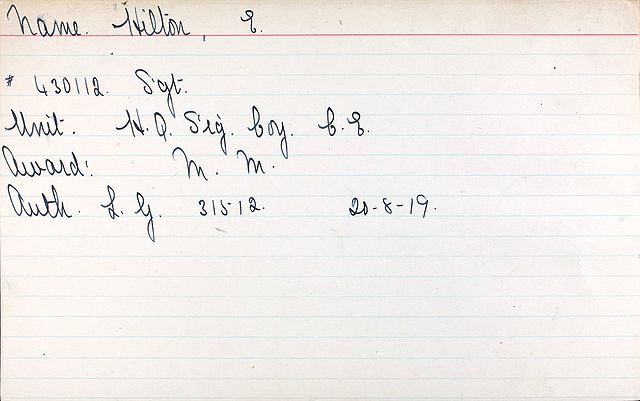 Name. Hilton, E.
# 430112. Sgt.
Unit. H.Q. Sig. Coy. C.E.
Award: M. M.
Auth. L. G. 31512. 20-8-19.